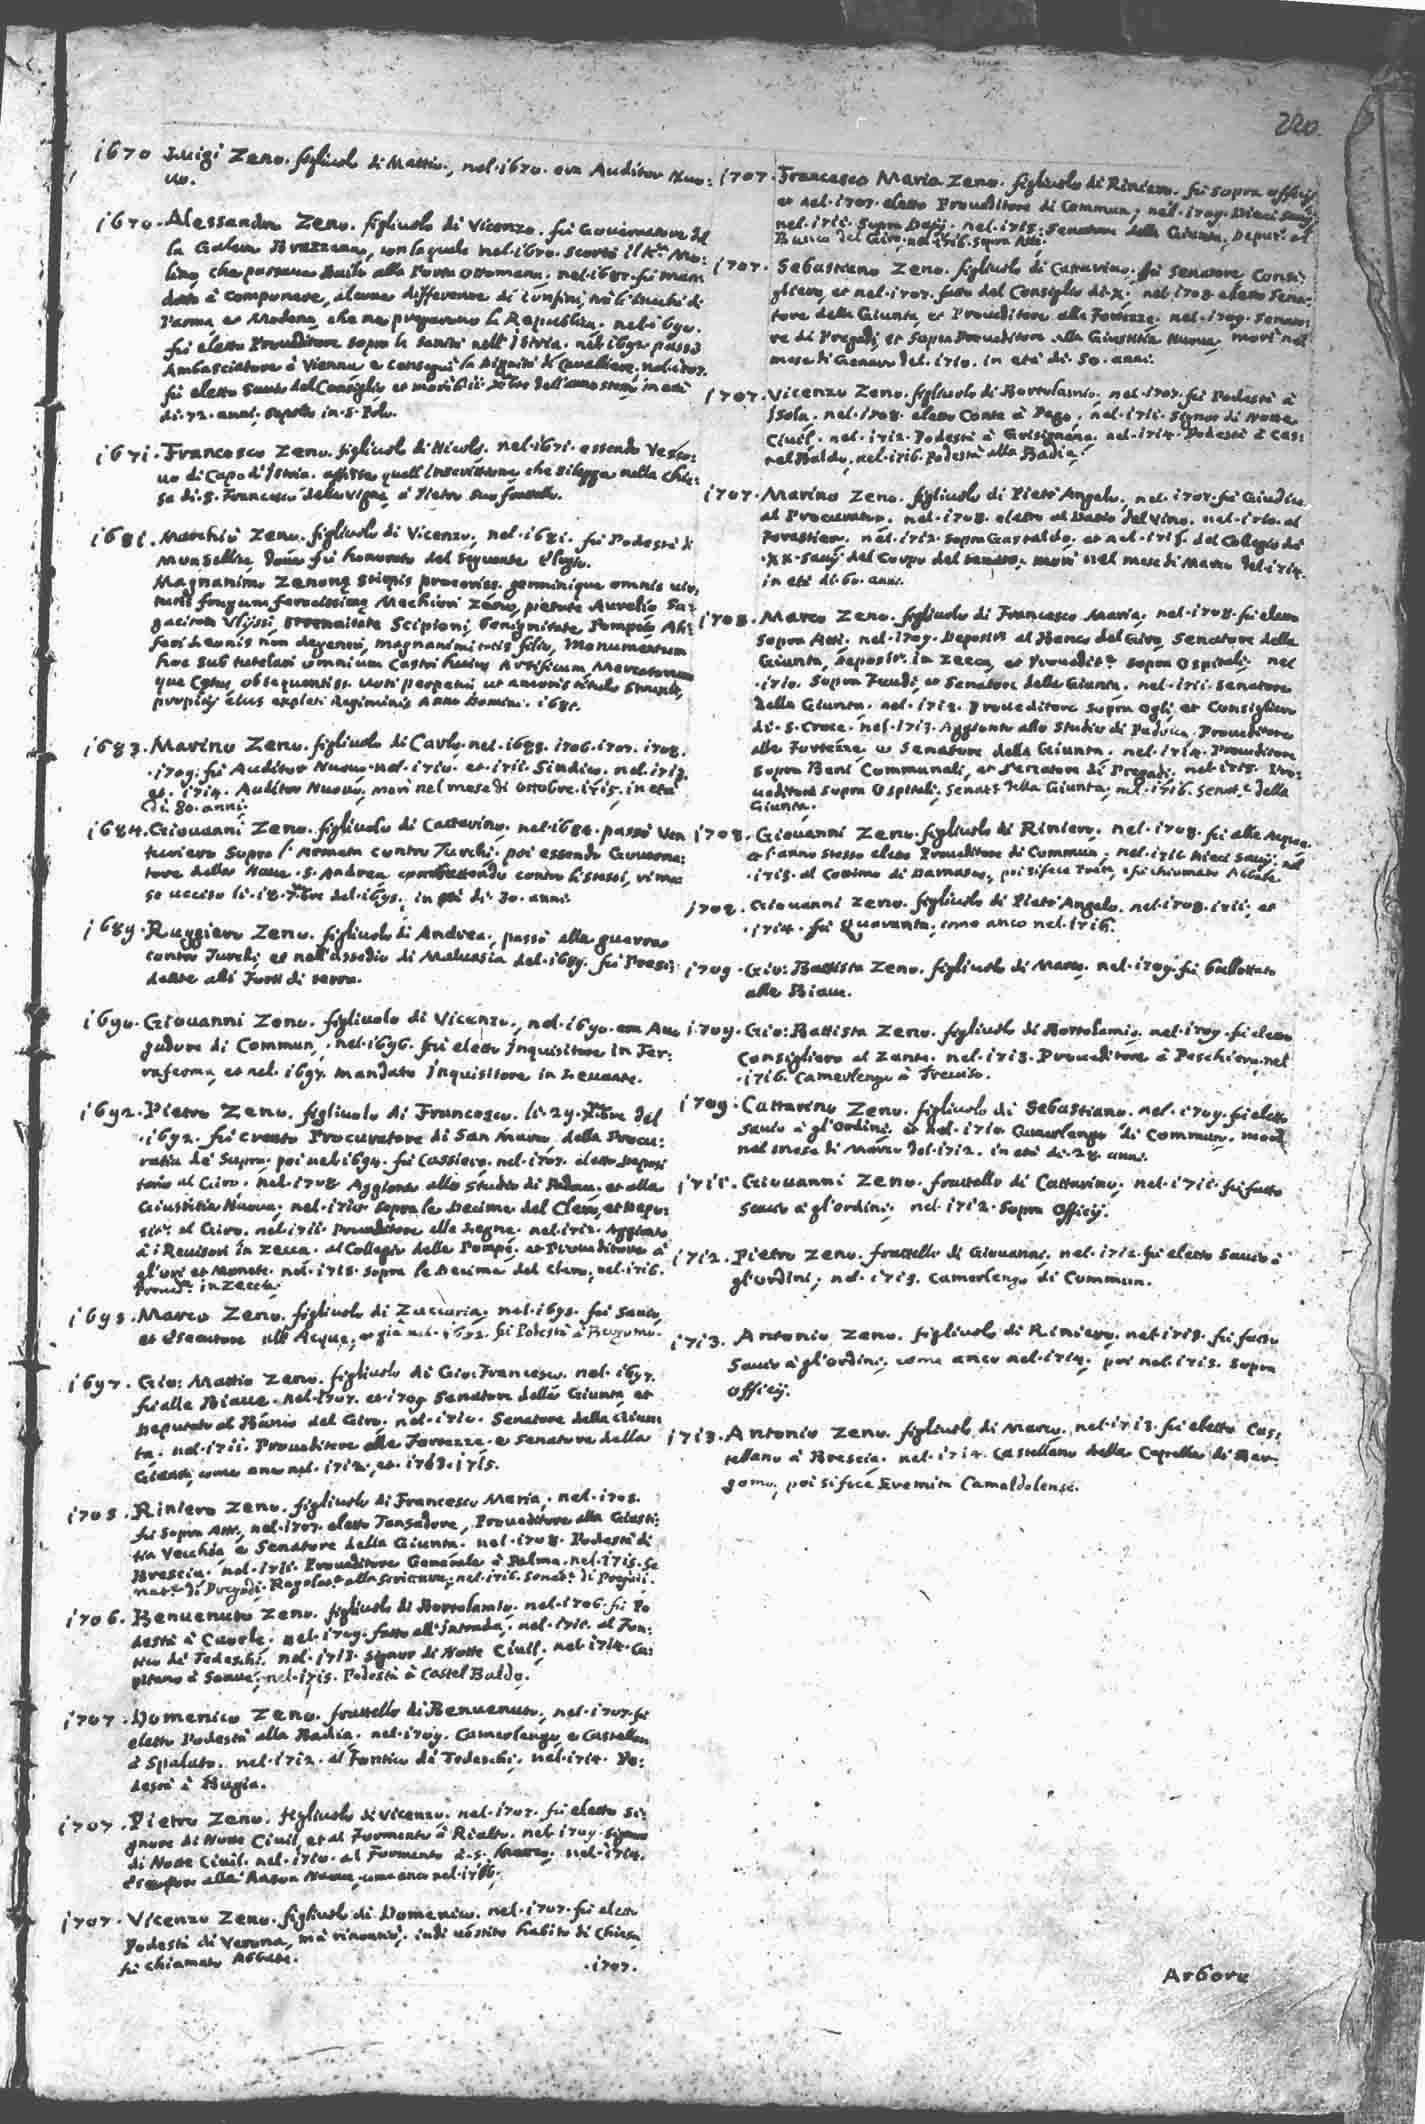 220.
1670 Luigi Zeno. figliuolo di Mattio, nel.1670. era Auditor Nuo:
uo.
1670. Alessandro Zeno. figliuolo di Vicenzo. fù Governatore del
la Galea Bazzana, con la quale nel.1670. scortò il Mo:
lino, che passava Bailo alla Porta Ottomana. nel.1687. fù man
dato à componere, alcune differenze di confini, trà li Duchi di
Parma, et Modena, che ne pregarono la Republica. nel.1690.
fù eletto Proveditore sopra la sanità nell'Istria. nel.1692 passò
Ambasciatore à Vienna e conseguì la dignità di Cavalliere. nel.1707.
fù eletto Savio del Consiglio, et morì li dell'anno stesso in età
di.72. anni, sepolto in.S. Polo.
1671. Francesco Zeno. figliuolo di Nicolò. nel.1671. essendo Vesco:
vo di Capo d'Istria. affisse quell'Inscrittione che si legge nella Chie:
sa di.S. Francesco della Vigna, à Pietro suo fratello.
1681. Marchiò Zeno. figliuolo di Vicenzo, nel.1681. fù Podestà à
Monselice, doue fù honorato del seguente elogio.
Magnanimo Zenone stirpis proceriss. germinique omnis uir:
tutis frugum feracissimo Mechiori Zeno, pietate Aurelio Sa:
gacitate Ulissi, strenuitate Scipioni, benignitate Pompeio, Ale:
xandri Leonis non degeneri, magnanimitatis filio, Monumentum
hoc sub tutelari omnium Castri huius Artificum, Mercatorum
que Cetus, obsequentiss. uoti perpetui ut amoris titulo struxit,
propitij eius expleti Regiminis Anno Domini. 1681.
1683. Marino Zeno. figliuolo di Carlo, nel.1683. 1706. 1707. 1708.
.1709. fù Auditor Nuovo. nel.1710. et.1711. Sindico. nel.1713.
et. 1714. Auditor Nuovo, morì nel mese di Ottobre. 1715. in età
di. 80. anni.
1684. Giouanni Zeno. figliuolo di Cattarino. nel.1684. passò Ven
turiero sopra l'Armata contro Turchi. poi essendo Governa:
tore della Naue.S. Andrea combattendo contro li stessi, rima:
se ucciso li.18. 7bre del.1695. in età di.30. anni.
1689. Ruggiero Zeno. figliuolo di Andrea, passò alla guerra
contro Turchi, et nell'assedio di Maluasia del.1689. fù Presi:
dente alli Forti di terra.
1690. Giouanni Zeno. figliuolo di Vicenzo, nel.1690. era Auo
gadore di Commun, nel.1696. fù eletto Inquisitore in Ter:
raferma, et nel. 1697. mandato Inquisitore in Leuante.
1692. Pietro Zeno. figliuolo di Francesco. li. 29. Xbre del
.1692. fù creato Procuratore di San Marco della Procu:
ratia de Supra. poi nel.1694. fù Cassiero. nel.1707. eletto Deposi
tario al Giro. nel.1708 Aggionto allo studio di Padoa. et alla
Giustitia Nuoua, nel.1710. sopra le Decime del Clero, et Depo:
sit.o al Giro. nel.1711. Proueditore alle Legne. nel.1712. Aggionto
à i Reuisori in Zecca. al Collegio delle Pompe, et Proueditore à
gl'ori et Monete. nel.1715. sopra le Decime del Clero, nel.1716.
Proued.re in Zecca.
1693. Marco Zeno. figliuolo di Zaccaria. nel.1693. fù Sauio,
et Essecutore all'Acque, e già nel.1672. fù Podestà à Bergomo.
1697. Gio: Mattio Zeno. figliuolo di Gio: Francesco. nel.1697.
fù alle Biaue. nel.1707. et.1709 Senatore della Giunta, et
Deputato al Banco del Giro. nel.1710. Senatore della Giun
ta. nel.1711. Proueditore alle Fortezze. e Senatore della
Giunta, come anco nel. 1712. et. 1713. 1715.
1705. Riniero Zeno. figliuolo di Francesco Maria, nel.1705.
fù sopra Atti, nel.1707. eletto Tansadore, Proueditore alla Giusti:
tia Vecchia e Senatore della Giunta. nel.1708. Podestà di
Brescia. nel.1711. Proueditore Generale à Palma. nel.1715. Se
nat.re di Pregadi. Regolat.r alla scrittura, nel.1716. Senat.r di Pregadi.
1706. Benuenuto Zeno. figliuolo di Bortolamio. nel.1706. fù Po
destà à Caorle. nel.1709. fatto all'Intrada, nel.1711. al Fon:
tico de Tedeschi. nel.1713. Signor di Notte Ciuil, nel.1714. Ca:
pitano à Soaue, nel.1715. Podestà à Castel Baldo.
1707. Domenico Zeno. frattello di Benuenuto, nel.1707. fù
eletto Podestà alla Badia. nel.1709. Camerlengo, e Castellan
à Spalato. nel.1712. al Fontico de Tedeschi, nel.1714. Po:
destà à Bugia.
1707. Pietro Zeno. figliuolo di Vicenzo. nel.1707. fù eletto Si:
gnore di Notte Ciuil, et al Formento à Rialto. nel.1709. Signor
di Notte Ciuil. nel.1710. al Formento à.S. Marco, nel.1714.
Essatore alla Rason Nuoua, come anco nel.1716.
1707. Vicenzo Zeno. figliuolo di Domenico. nel.1707. fù eletto
Podestà di Verona, mà rinontiò. indi uestito habito di Chiesa
fù chiamato Abbate.
.1707.
1707. Francesco Maria Zeno. figliuolo di Riniero. fù sopra officij
et nel.1707. eletto Proueditore di Commun, nel.1709. Dieci Sauij
nel.1711. Sopra Datij. nel.1715. Senatore della Giunta, Deput.o al
Banco del Giro. nel.1716. sopra Atti.
1707. Sebastiano Zeno. figliuolo di Cattarino, fù Senatore, Consi:
gliero, et nel.1707. fatto del Consiglio di.X. nel.1708 eletto Sena:
tore della Giunta, et Proueditore alle Fortezze. nel.1709. Senato:
re di Pregadi, et Sopra Proueditore alla Giustitia Nuoua, morì nel
mese di Genaro del. 1710. in età di. 50. anni.
1707. Vicenzo Zeno. figliuolo di Bortolamio, nel.1707. fù Podestà à
Isola. nel.1708. eletto Conte à Pago, nel.1711. Signor di Notte
Ciuil. nel.1712. Podestà à Grisignana. nel.1714. Podestà à Cas:
tel Baldo, nel.1716. Podestà alla Badia.
1707. Marino Zeno. figliuolo di Piet.o Angelo, nel.1707. fù Giudice
al Procurator, nel.1708. eletto al Datio del Vino. nel.1710. al
Forestier. nel.1712. sopra Gastaldo, et nel.1713. del Collegio di
.XX. Sauij del Corpo del Senato, morì nel mese di Marzo del.1714.
in età di.60. anni.
1708. Marco Zeno. figliuolo di Francesco Maria, nel.1708. fù eletto
sopra Atti, nel.1709. Deposit.o al Banco del Giro, Senatore della
Giunta, Deposit.o in Zecca, et Prouedit.re sopra Ospitali, nel
.1710. Sopra Feudi, et Senatore della Giunta. nel.1711. Senatore
della Giunta. nel.1712. Proueditore sopra Ogli, et Consiglier
di.S. Croce. nel.1713. Aggionto allo Studio di Padoua, Proueditore
alle Fortezze, e Senatore della Giunta. nel.1714. Proueditore
sopra Beni Communali, et Senatore di Pregadi, nel.1715. Pro:
ueditore sopra Ospitali, Senat.re della Giunta, nel.1716. Senat.e della
Giunta.
1708. Giouanni Zeno. figliuolo di Riniero. nel.1708. fù alle Acque
et l'anno stesso eletto Proueditore di Commun, nel.1711. Dieci Sauij, nel
.1713. al Cottimo di Damasco, poi si fece Prete, e fù chiamato Abbate.
1708. Giouanni Zeno. figliuolo di Piet.o Angelo. nel.1708. 1711, et
.1714. fù Quaranta, come anco nel.1716.
1709. Gio: Battista Zeno. figliuolo di Marco. nel.1709. fù ballottato
alle Biaue.
1709. Gio: Battista Zeno. figliuolo di Bortolamio, nel.1709. fù eletto
Consigliero al Zante. nel.1713. Proueditore à Peschiera, nel
.1716. Camerlengo à Treuiso.
1709. Cattarino Zeno. figliuolo di Sebastiano. nel.1709. fù eletto
Sauio à gl'Ordini, et nel.1710. Camerlengo di Commun, morì
nel mese di Marzo del.1712. in età di.28. anni.
1711. Giouanni Zeno. frattello di Cattarino, nel.1711. fù fatto
Sauio à gl'ordini, nel.1712. Sopra Officij.
1712. Pietro Zeno. frattello di Giouanni, nel.1712. fù eletto Sauio à
gl'ordini, nel.1715. Camerlengo di Commun.
1713. Antonio Zeno. figliuolo di Riniero, nel.1713. fù fatto
Sauio à gl'ordini, come anco nel.1714. poi nel.1715. Sopra
officij.
1713. Antonio Zeno. figliuolo di Marco, nel.1713. fù eletto Cas:
tellano à Brescia, nel.1714. Castellano della Capella di Ber:
gomo, poi si fece Eremita Camaldolense.
Arbore